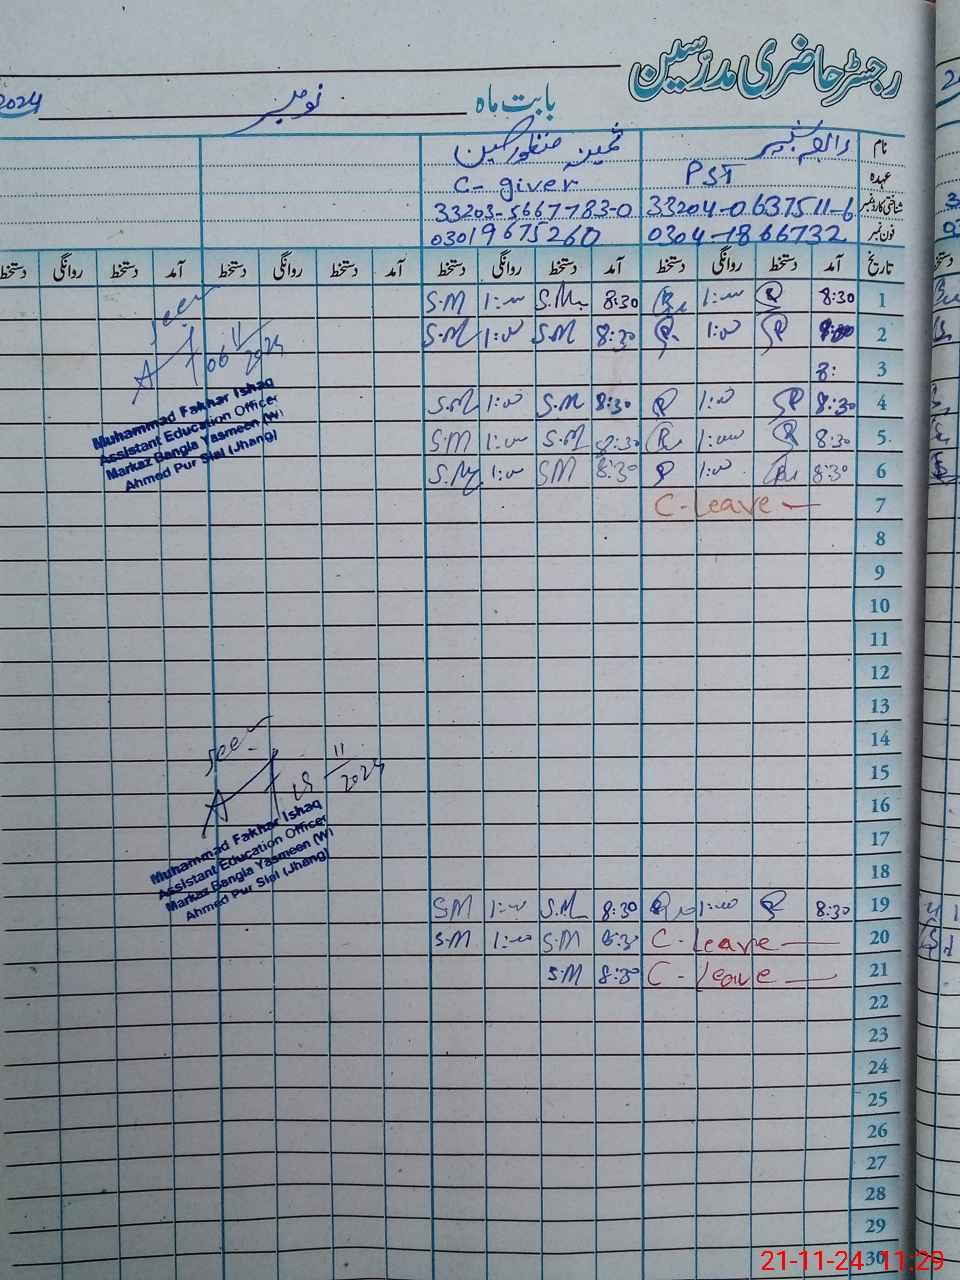 رجسٹر حاضری مدرسین
بابت ماہ نومبر 2024
نام رابعہ بشیر ثمین منظور حسین
عہدہ PST C- giver
شناختی کارڈ نمبر 33204-0637511-6 33203-5667783-0
فون نمبر 0304-7866732 03019675260
تاریخ آمد دستخط روانگی دستخط آمد دستخط روانگی دستخط آمد دستخط روانگی دستخط آمد دستخط روانگی دستخط
1 8:30 1:00 8:30 S.M 1:00 S.M
2 1:00 8:30 S.M 1:00 S.M
3 8:
4 8:30 1:00 8:30 S.M 1:00 S.M
5 8:30 1:00 8:30 S.M 1:00 S.M
6 8:30 1:00 8:30 SM 1:00 S.M
7 C-Leave
8
9
10
11
12
13
14
15
16
17
18
19 8:30 1:00 8:30 S.M 1:00 SM
20 C-Leave 8:30 S.M 1:00 S.M
21 C-leave 8:30 S.M
22
23
24
25
26
27
28
29
30
Seen
06/11/2024
Muhammad Fakhar Ishaq
Assistant Education Officer
Markaz Bangla Yasmeen (W)
Ahmed Pur Sial (Jhang)
Seen
18 11/2024
Muhammad Fakhar Ishaq
Assistant Education Officer
Markaz Bangla Yasmeen (W)
Ahmed Pur Sial (Jhang)
21-11-24 11:29